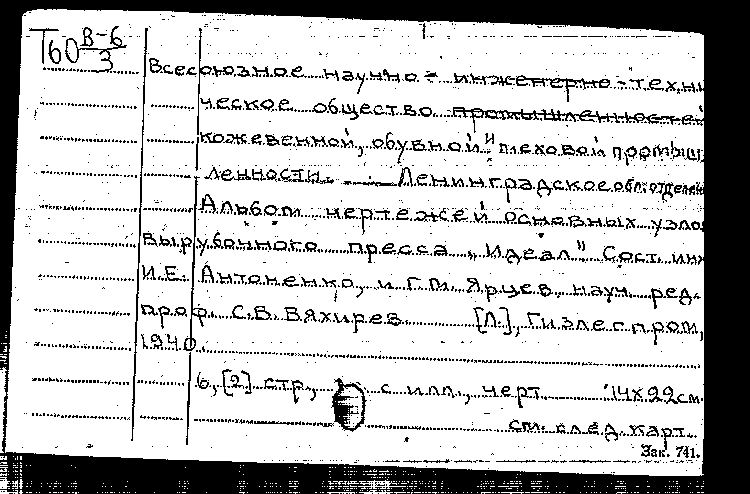 Т60 В-6/3
Всесоюзное научно-инженерно-техни
ческое общество промышленностей
кожевенной, обувной и меховой промыш
ленности. Ленинградское обл. отделен
Альбом чертежей основных узлов
вырубочного пресса „Идеал" Сост. инж
И.Е. Антоненко, и Г.М. Ярцев, науч. ред.
проф. С.В. Вахирев [Л.], Гизлегпром,
1940.
6, [2] стр., с илл., черт. 14х22см
см. след. карт.
Зак. 741.